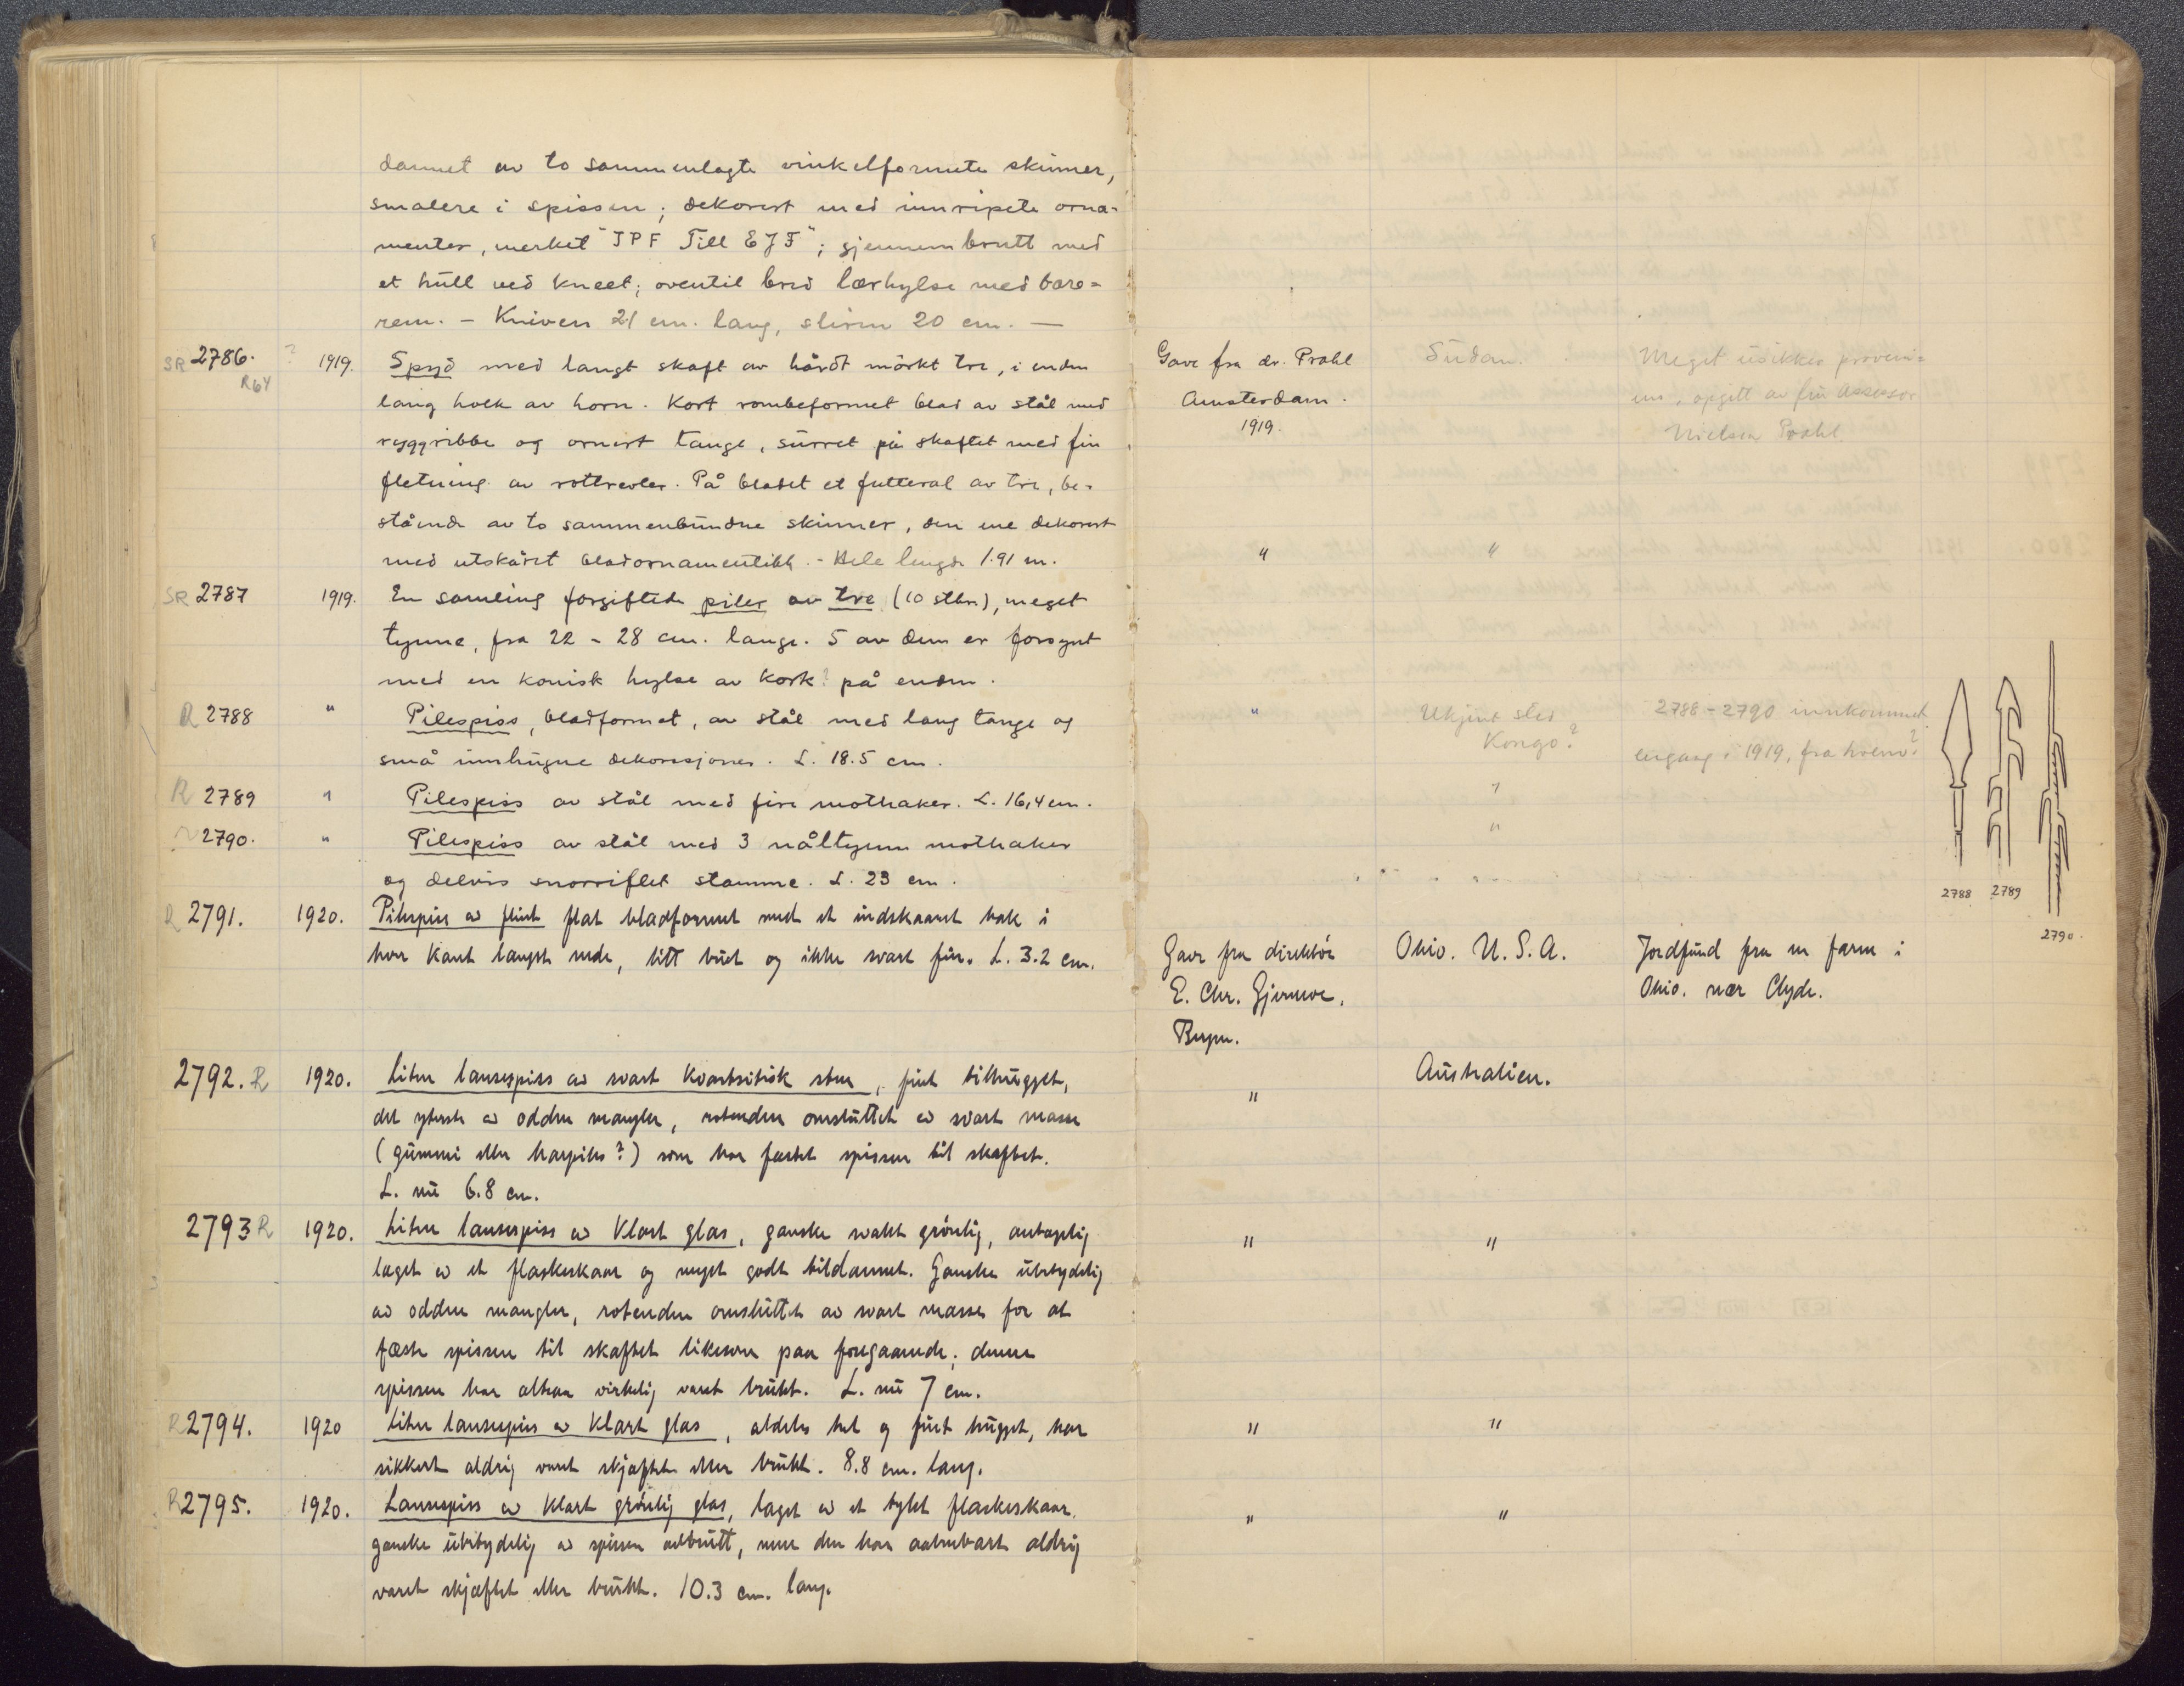 dannet av to sammenlagte vinkelformete skinner,
smalere i spissen; dekorert med innripete orna-
menter, merket "JPF Till EJF"; gjennembrutt med
et hull ved kneet; oventil bred lærhylse med bære-
rem. - Kniven 21 cm. lang, sliren 20 cm. —
SR 2786. R64 ? 1919. Spyd med langt skaft av hårdt mörkt tre, i enden
lang holk av horn. Kort rombeformet blad av stål med
ryggribbe og ornert tange, surret på skaftet med fin
fletning av rottrevler. På bladet et futteral av tre, be-
stående av to sammenbundne skinner, den ene dekorert
med utskåret bladornamentikk. - Hele lengde 1.91 m.
Gave fra dr. Prahl
Amsterdam.
1919.
Sudan.
Meget usikker proveni-
ens, opgitt av fru Assessor
Nielsen Prahl
SR 2787 1919. En samling forgiftede piler av tre (10 stkr), meget
tynne, fra 22 - 28 cm. lange. 5 av dem er forsynt
med en konisk hylse av kork? på enden.
" "
R 2788 " Pilespiss, bladformet, av stål med lang tange og
små innhugne dekorasjoner. L. 18.5 cm.
" Ukjent sted
Kongo?
2788-2790 innkommet
engang i 1919, fra hvem?
R 2789 " Pilespiss av stål med fire mothaker. L. 16,4 cm. "
2790. " Pilespiss av stål med 3 nåltynne mothaker "
og delvis snorriflet stamme. L. 23 cm.
2788 2789
2790.
R 2791. 1920. Pilespiss av flint flat bladformet med et indskaaret hak i
hver kant længst nede, litt butt og ikke svært fin. L. 3.2 cm.
Gave fra direktör
E. Chr. Gjermoe,
Bergen.
Ohio. U.S.A.
Jordfund fra en farm i
Ohio. nær Clyde.
2792. R 1920. Liten lansespiss av svart kvartsitisk sten, fint tilhugget,
det yterste av odden mangler, rotenden omsluttet av svart masse
(gummi eller harpiks?) som har fæstet spissen til skaftet.
L. nu 6.8 cm.
" Australien.
2793 R 1920. Liten lansespiss av klart glas, ganske svakt grönlig, antagelig
laget av et flaskeskaar og meget godt tildannet. Ganske ubetydelig
av odden mangler, rotenden omsluttet av svart masse for at
fæste spissen til skaftet likesom paa foregaaende; denne
spissen har altsaa virkelig været brukt. L. nu 7 cm.
" "
R 2794. 1920 Liten lansespiss av klart glas, aldeles hel og fint hugget, har
sikkert aldrig været skjæftet eller brukt. 8.8 cm. lang.
" "
R 2795. 1920. Lansespiss av klart grönlig glas, laget av et tykt flaskeskaar.
ganske ubetydelig av spissen avbrutt, men den har aabenbart aldrig
været skjæftet eller brukt. 10.3 cm. lang.
" "